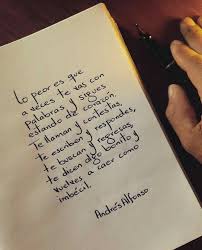 Lo peor es que
a veces te vas con
palabras y sigues
estando de corazón.
Te llaman y contestas,
te escriben y respondes,
te buscan y regresas,
te dicen algo bonito y
vuelves a caer como
imbécil.
Andrés Alfonso